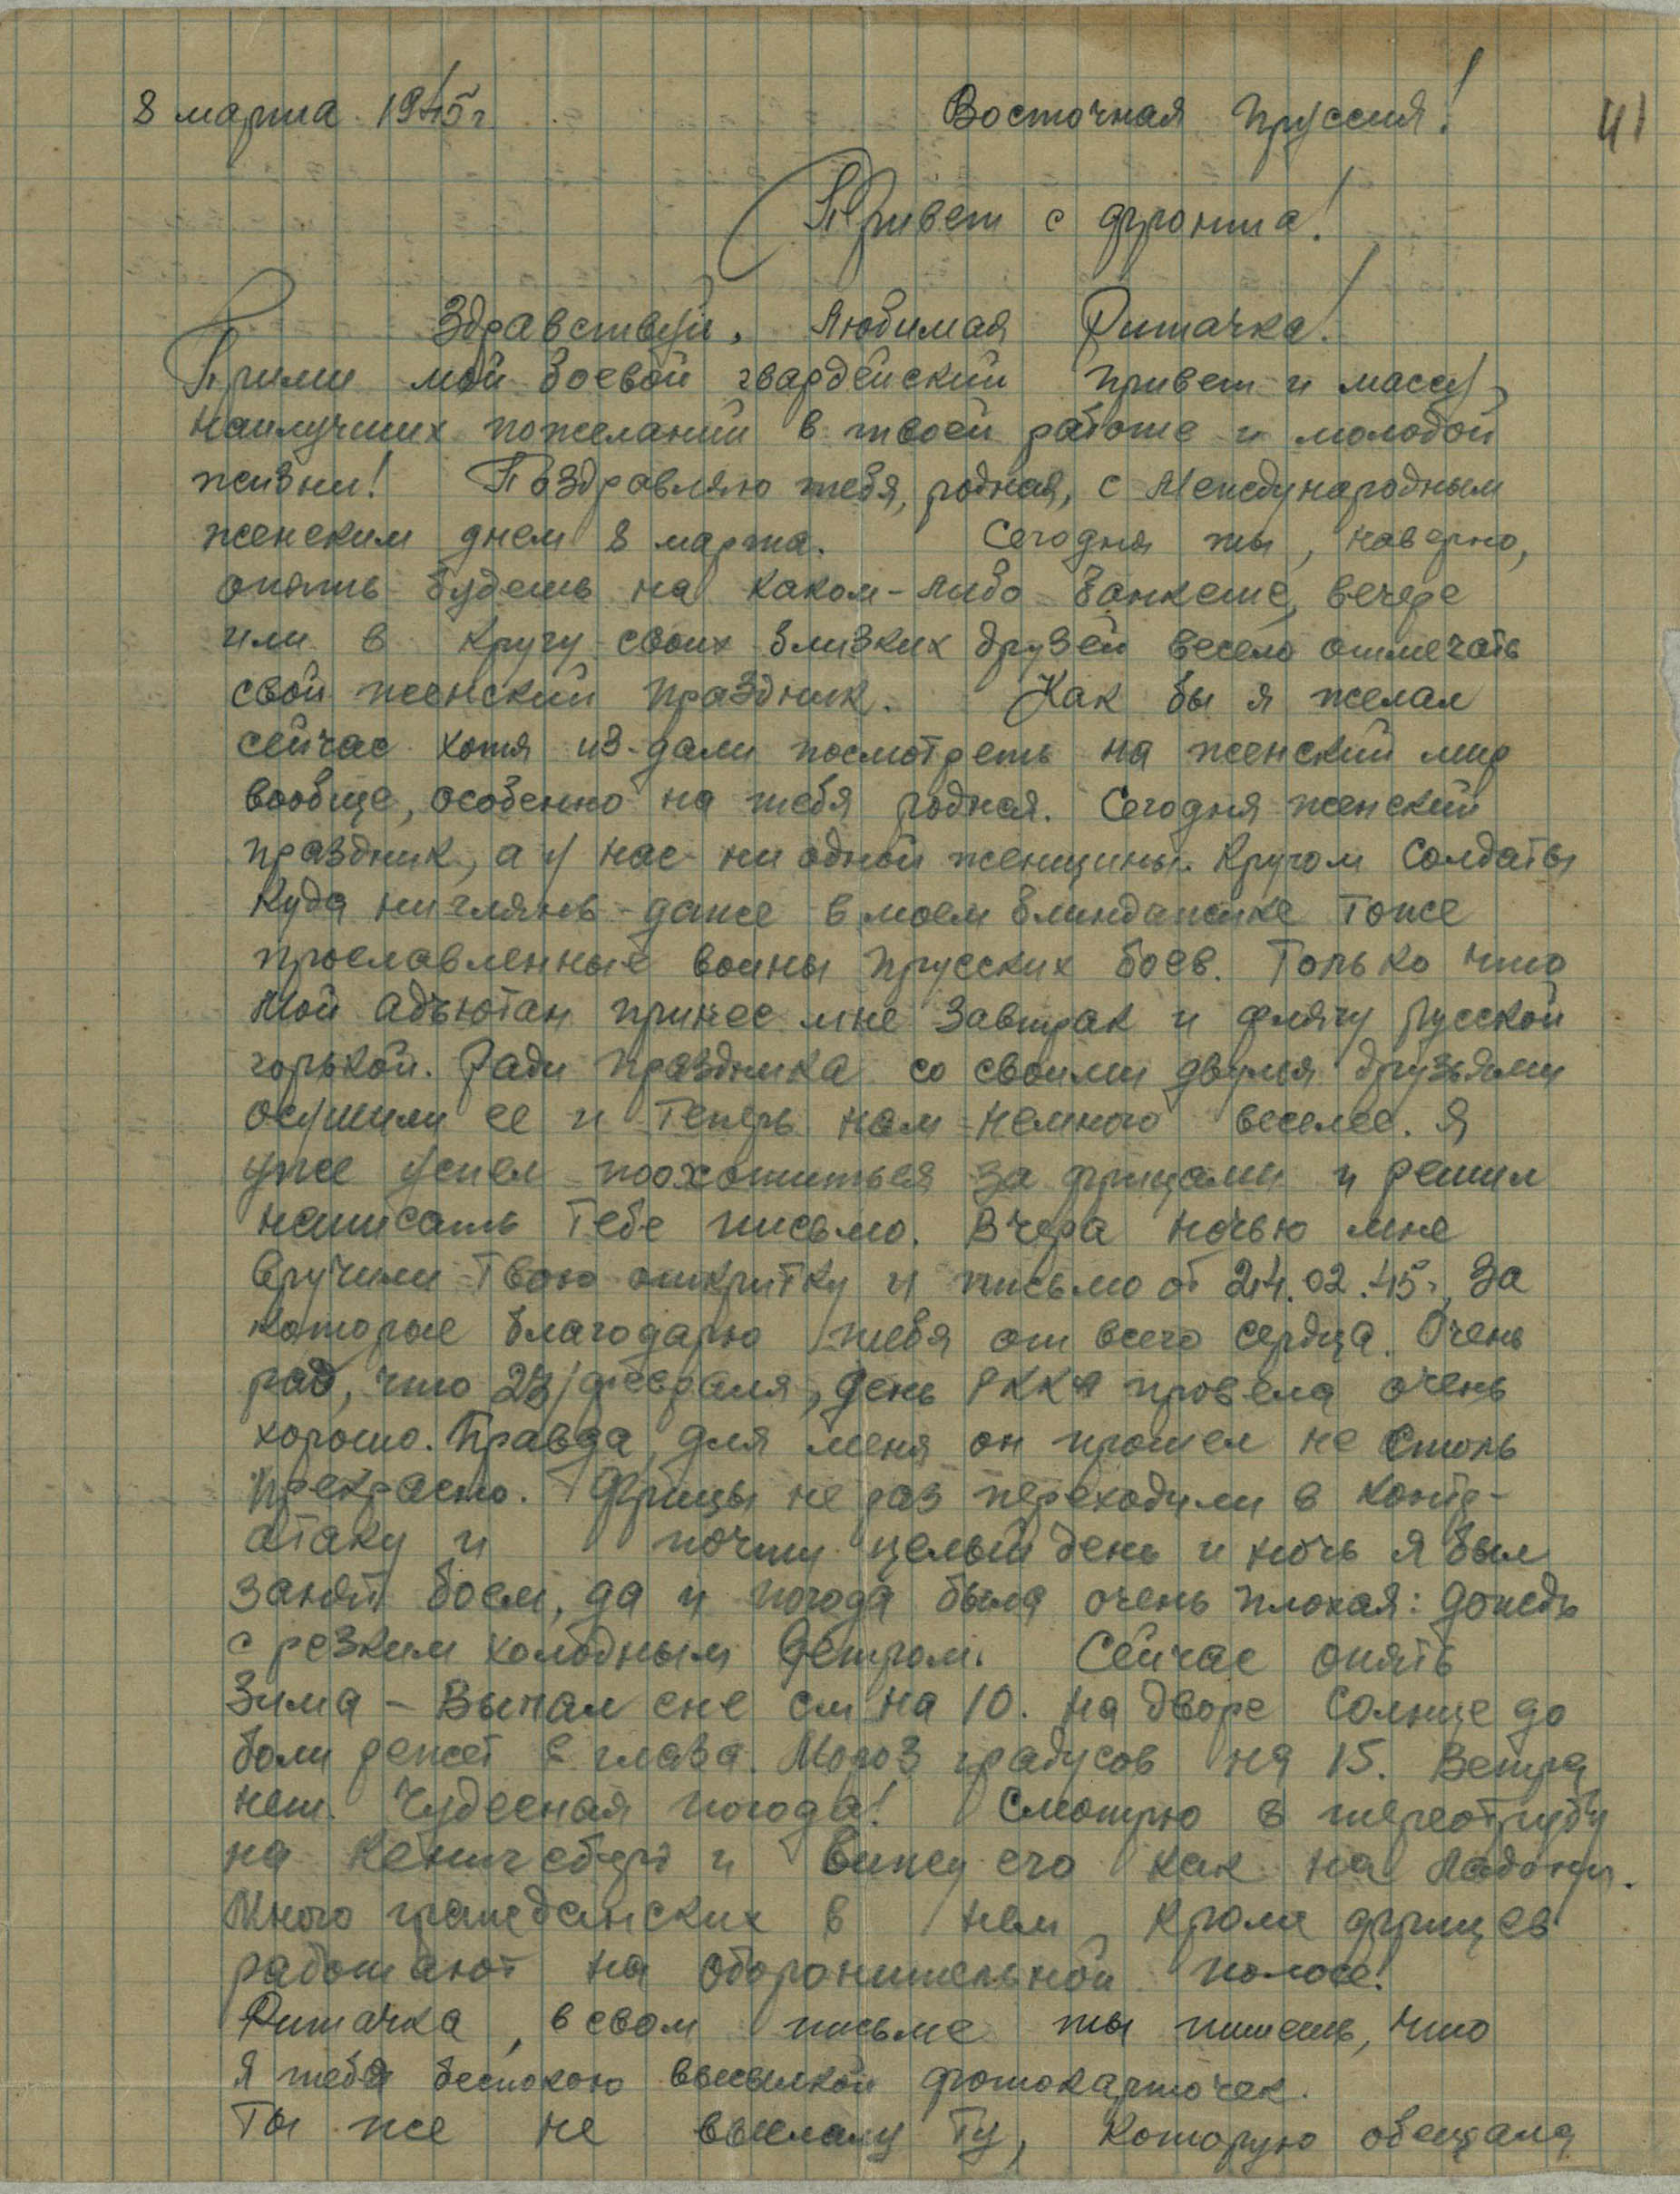 8 марта 1945г. Восточная Пруссия!
41
Привет с фронта!
Здравствуй, любимая Риточка!
Прими мой боевой гвардейский привет и массу
наилучших пожеланий в твоей работе и молодой
жизни! Поздравляю тебя, родная, с Международным
женским днем 8 марта. Сегодня ты, наверно,
опять будешь на каком-либо банкете, вечере
или в кругу своих близких друзей весело отмечать
свой женский праздник. Как бы я желал
сейчас хотя из-дали посмотреть на женский мир
вообще, особенно на тебя родная. Сегодня женский
праздник, а у нас ни одной женщины. Кругом солдаты
куда ни глянь - даже в моем блиндажике тоже
прославленные воины прусских боев. Только что
мой адъютан принес мне завтрак и флягу русской
горькой. Ради праздника со своими двумя друзьями
осушили ее и теперь нам немного веселее. Я
уже успел поохотиться за фрицами и решил
написать тебе письмо. Вчера ночью мне
вручили твою открытку и письмо от 24.02.45г, за
которые благодарю тебя от всего сердца. Очень
рад, что 23/февраля, день РККА провела очень
хорошо. Правда, для меня он прошел не столь
прекрасно. Фрицы не раз переходили в контр-
атаку и почти целый день и ночь я был
занят боем, да и погода была очень плохая: дождь
с резким холодным ветром. Сейчас опять
зима - выпал сне см на 10. На дворе солнце до
боли режет глаза. Мороз градусов на 15. Ветра
нет. Чудесная погода! Смотрю в стереотрубу
на Кенигсберг и вижу его как на ладони.
Много гражданских в нем, кроме фрицев
работают на оборонительной полосе.
Риточка, в свом письме ты пишешь, что
я тебя беспокою высылкой фотокарточек.
Ты же не выслала ту, которую обещала